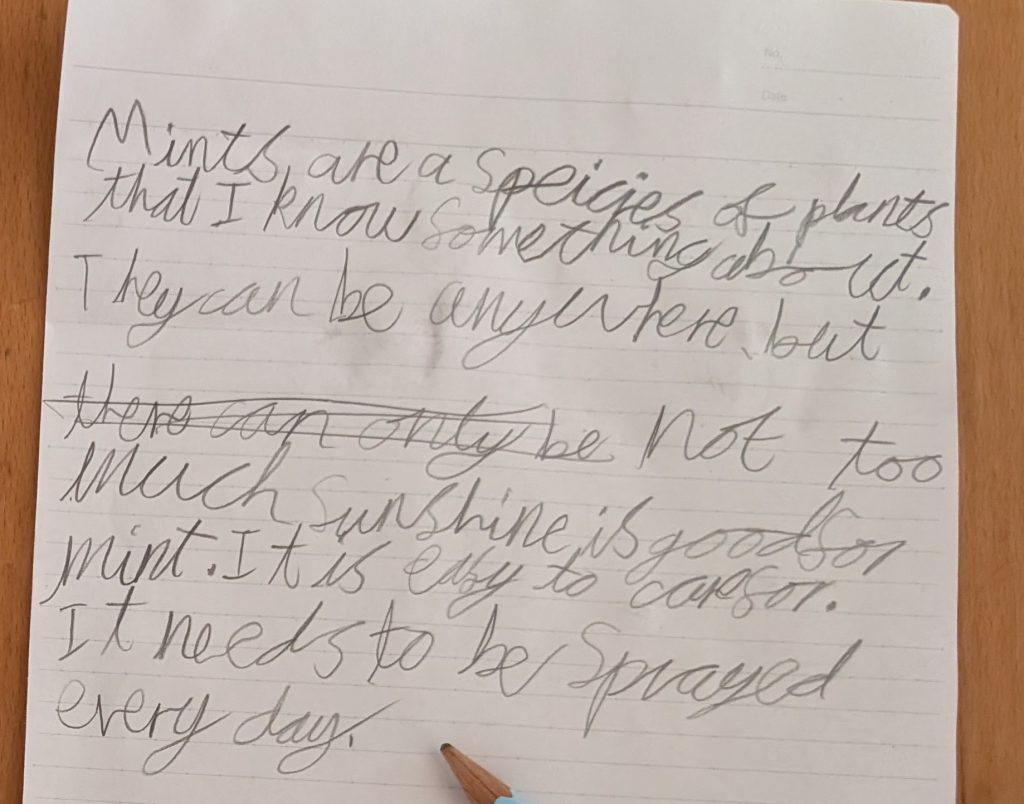 No.
Date
Mints are a speicies of plants
that I know something about.
They can be anywhere, but
~~there can only be~~ not too
much sunshine is good for
mint. It is easy to care for.
It needs to be sprayed
every day.